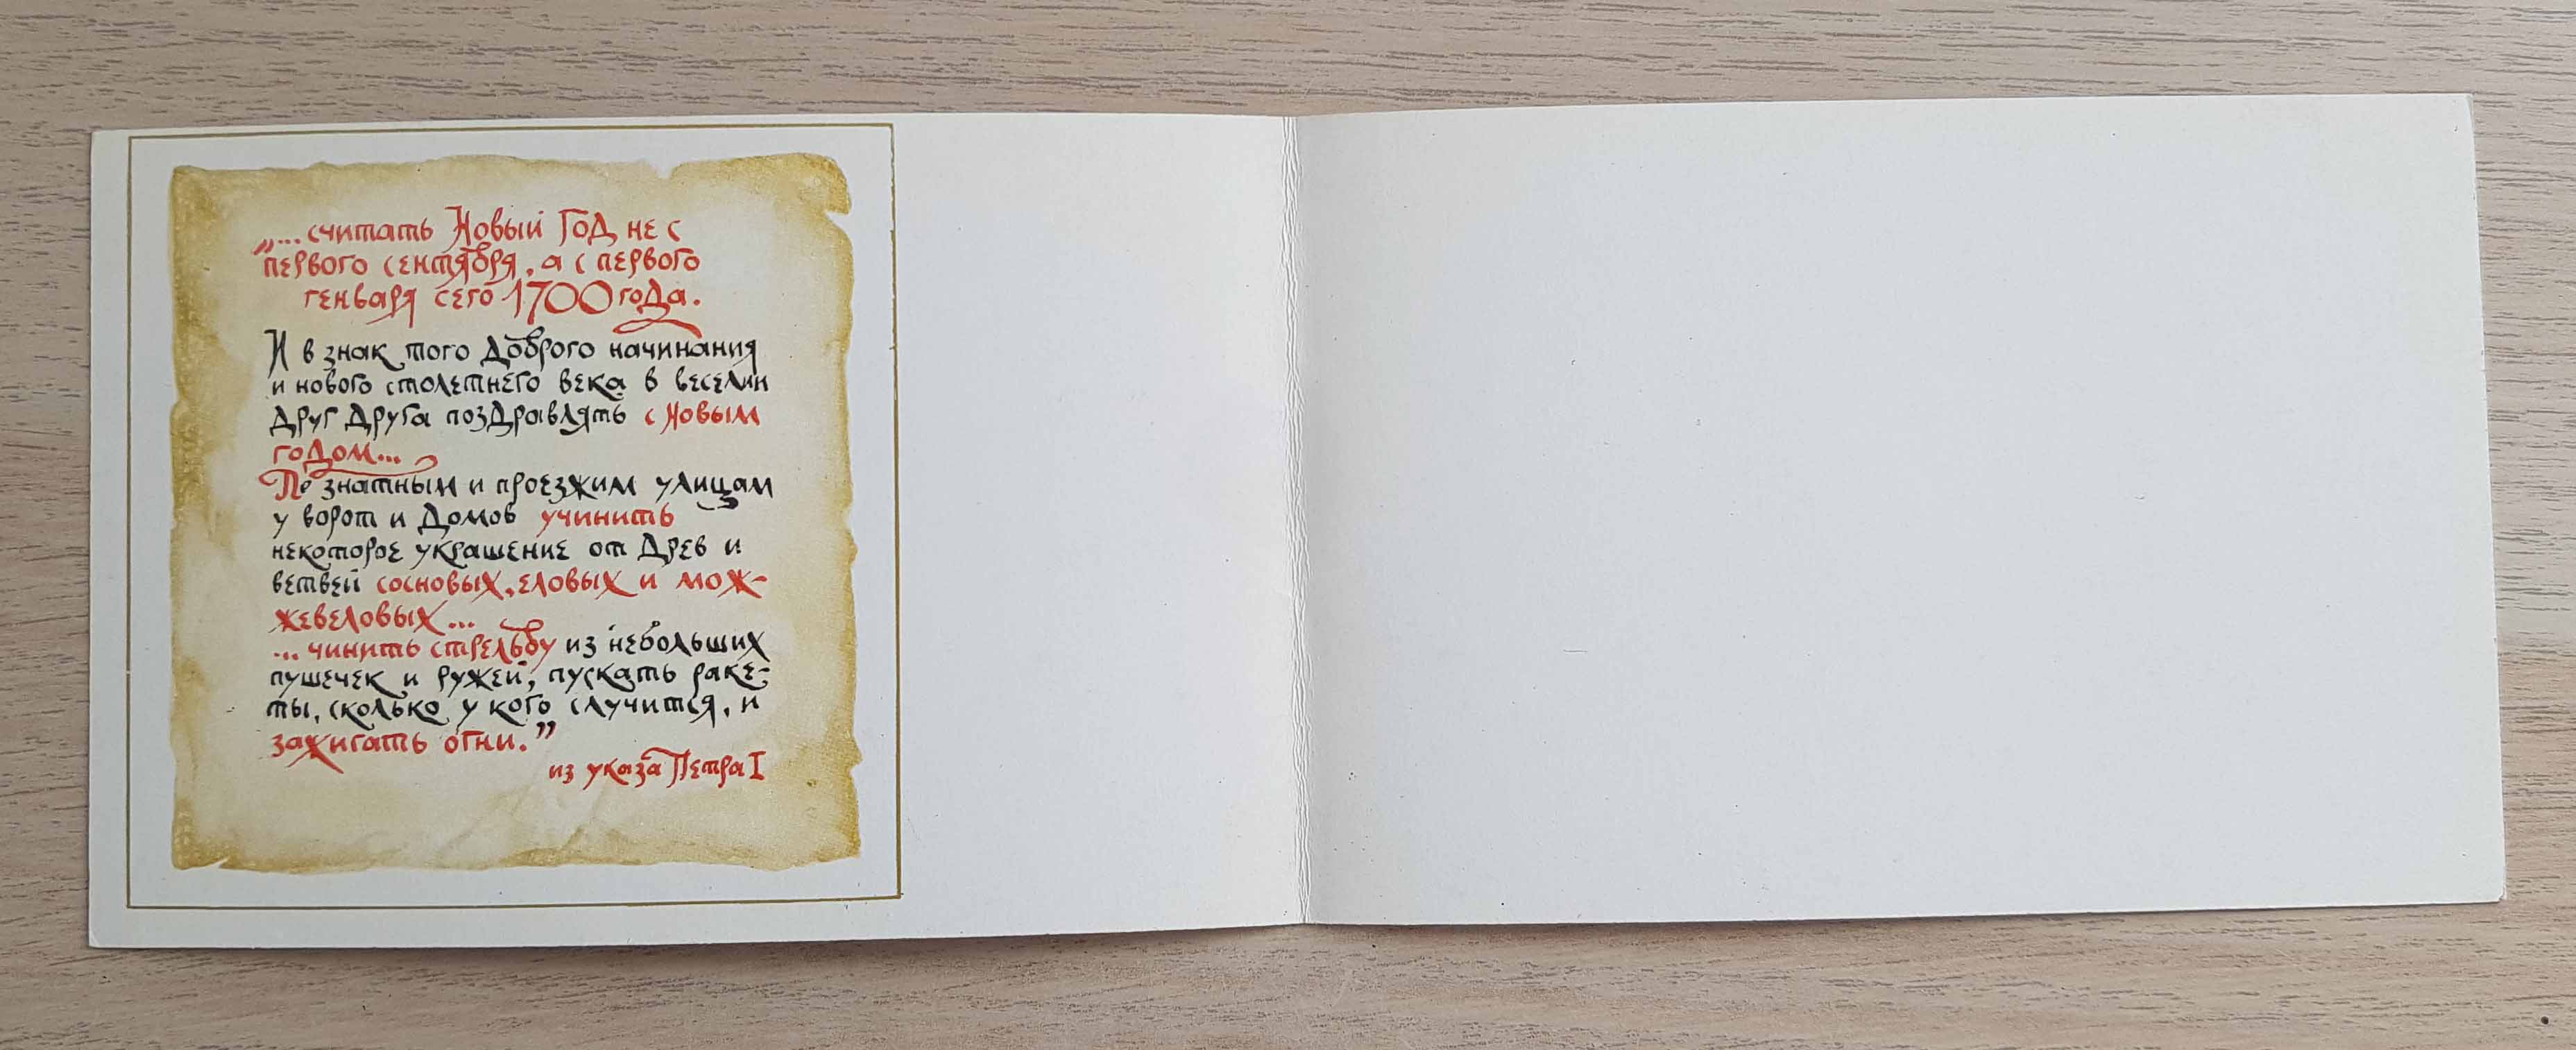 „... считать Новый Год не с
первого сентября, а с первого
генваря сего 1700 года.
И в знак того доброго начинания
и нового столетнего века в веселии
друг друга поздравлять с Новым
годом...
По знатным и проезжим улицам
у ворот и домов учинить
некоторое украшение от древ и
ветвей сосновых, еловых и мож-
жевеловых...
... чинить стрельбу из небольших
пушечек и ружей, пускать раке-
ты, сколько у кого случится, и
зажигать огни.”
из указа Петра I